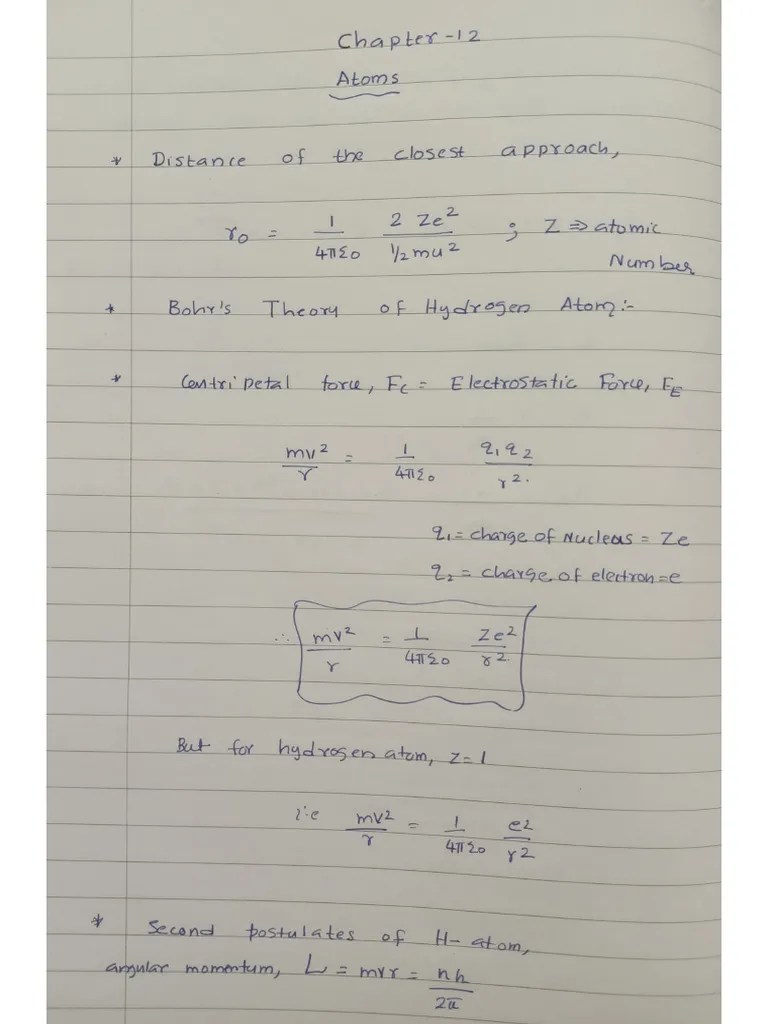 Chapter-12
Atoms
* Distance of the closest approach,
r₀ = 1/4πε₀ 2 Ze²/½mu² ; Z ⇒ atomic
Number
* Bohr's Theory of Hydrogen Atom:-
* Centripetal force, F_C = Electrostatic Force, F_E
mv²/r = 1/4πε₀ q₁q₂/r².
q₁ = charge of Nucleus = Ze
q₂ = charge of electron = e
∴ mv²/r = 1/4πε₀ Ze²/r².
But for hydrogen atom, z=1
i.e mv²/r = 1/4πε₀ e²/r²
* Second postulates of H-atom,
angular momentum, L = mvr = nh/2π